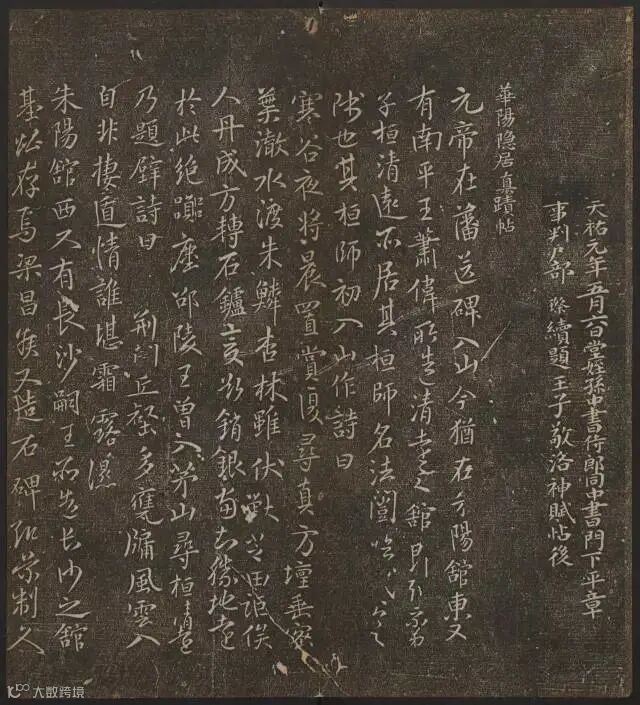 天祐元年五月六日堂姪孫中書侍郎同中書門下平章
事判戶部 璨續題王子敬洛神賦帖後
華陽隱居真蹟帖
元帝在藩送碑入山今猶在方陽館東又
有南平王蕭偉所造清遠之館
子桓清遠所居其桓師名法闓
也其桓師初入山作詩曰
寒谷夜將晨置賞復尋真方壇垂密
葉澈水渡朱鱗杏林雖伏獸芝田詎俟
人丹成方轉石爐變欲銷銀當知勝地遠
於此絕囂塵邵陵王曾入茅山尋桓清遠
乃題壁詩曰 荊門丘壑多甕牖風雲入
自非棲遁情誰堪霜露濕
朱陽館西又有長沙嗣王所造長沙之館
基址存焉梁昌侯又造石碑制文
大数跨境